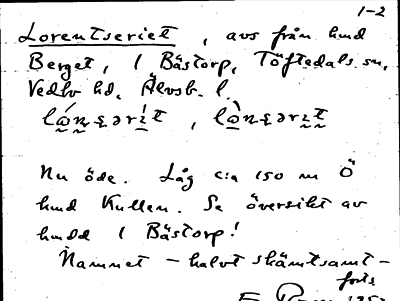 1-2
Lorentseriet, avs från hmd
Berget, 1 Bästorp, Töftedals sn,
Vedbo hd, Älvsb. l.
Nu öde. Låg c:a 150 m Ö
hmd Kullen. Se översikt av
hmdd 1 Bästorp!
Namnet – halvt skämtsamt –
forts.